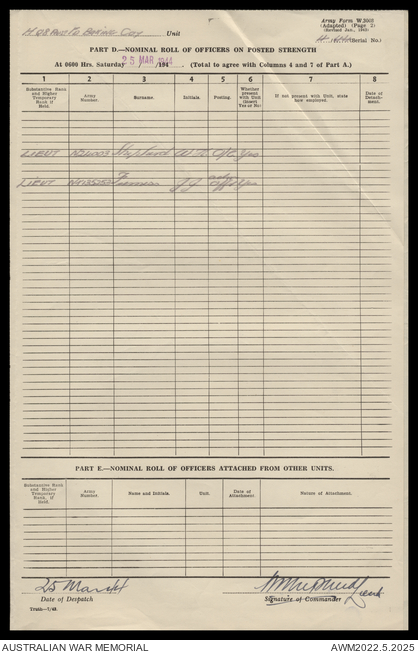 Unit
Army Form W.3008
(Adapted) (Page 2)
(Revised Jan., 1943)
(Serial No.)
PART D.—NOMINAL ROLL OF OFFICERS ON POSTED STRENGTH
At 0600 Hrs. Saturday 25 MAR 1944 /194 (Total to agree with Columns 4 and 7 of Part A.)
1 2 3 4 5 6 7 8
Substantive Rank and Higher Temporary Rank if Held. Army Number. Surname. Initials. Posting. Whether present with Unit (Insert Yes or No) If not present with Unit, state how employed. Date of Detachment.
LIEUT O/C Yes
LIEUT J J Yes
PART E.—NOMINAL ROLL OF OFFICERS ATTACHED FROM OTHER UNITS.
Substantive Rank and Higher Temporary Rank, if Held. Army Number. Name and Initials. Unit. Date of Attachment Nature of Attachment.
25 March
Lieut
Date of Despatch
Signature of Commander
AUSTRALIAN WAR MEMORIAL
AWM2022.5.2025